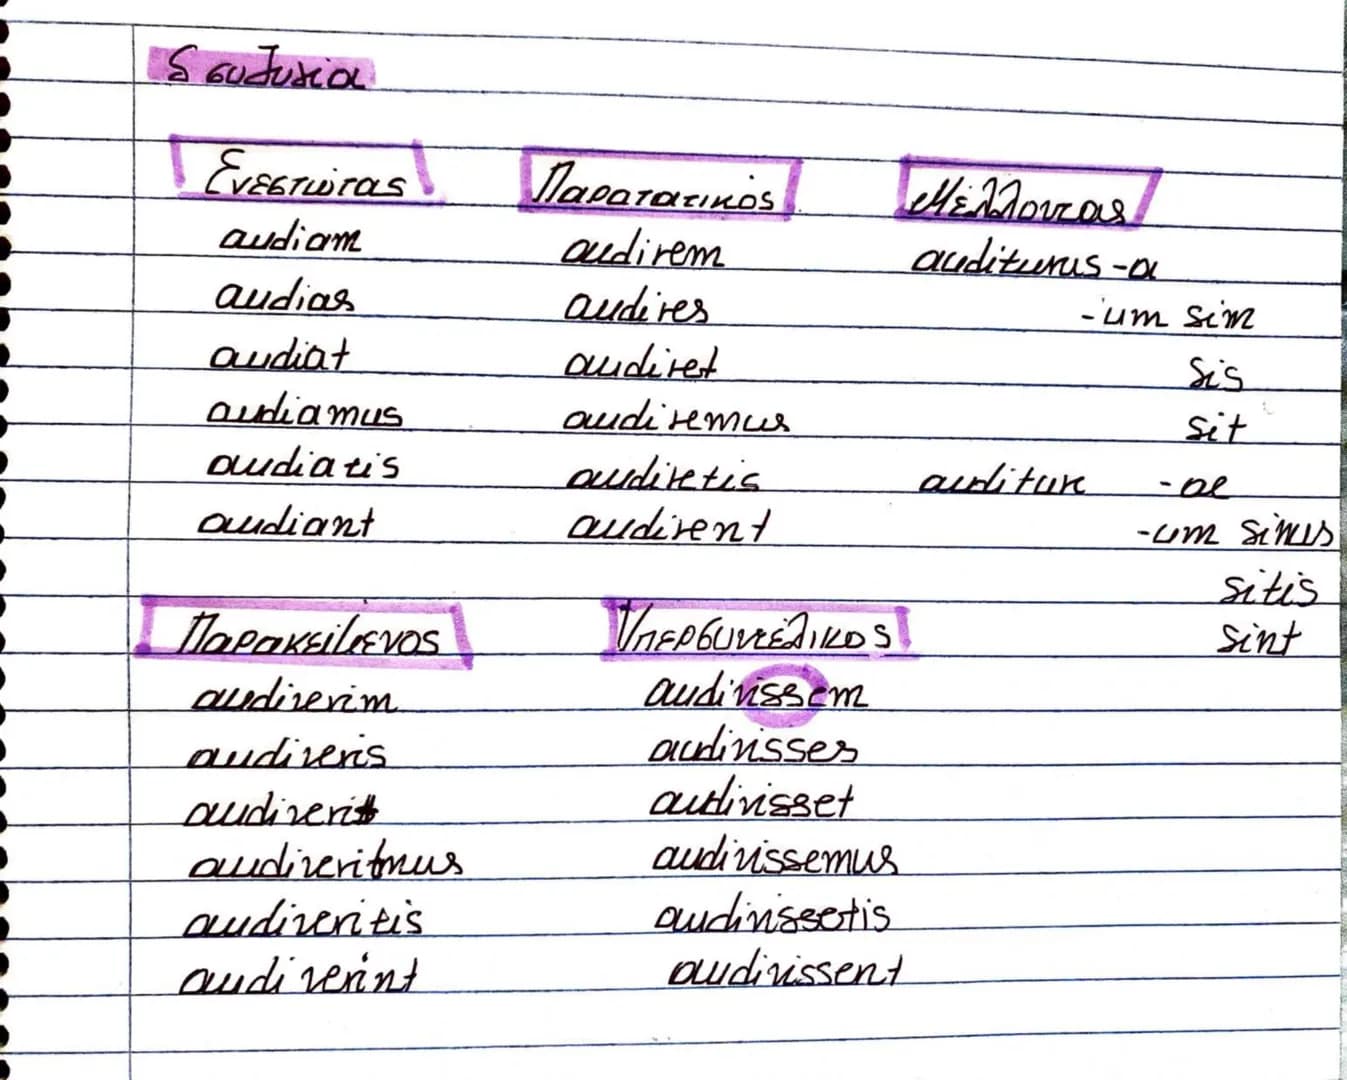 δ συζυγία
Ενεστώτας Παρατατικός Μέλλοντας
audiam audirem auditurus -a
audias audires -um sim
audiat audiret sis
audiamus audiremus sit
audiatis audiretis auditure -ae
audiant audirent -um simus
sitis
Παρακείμενος Υπερσυντέλικος sint
audiverim audivissem
audiveris audivisses
audiverit audivisset
audiveritmus audivissemus
audiveritis audivissetis
audiverint audivissent